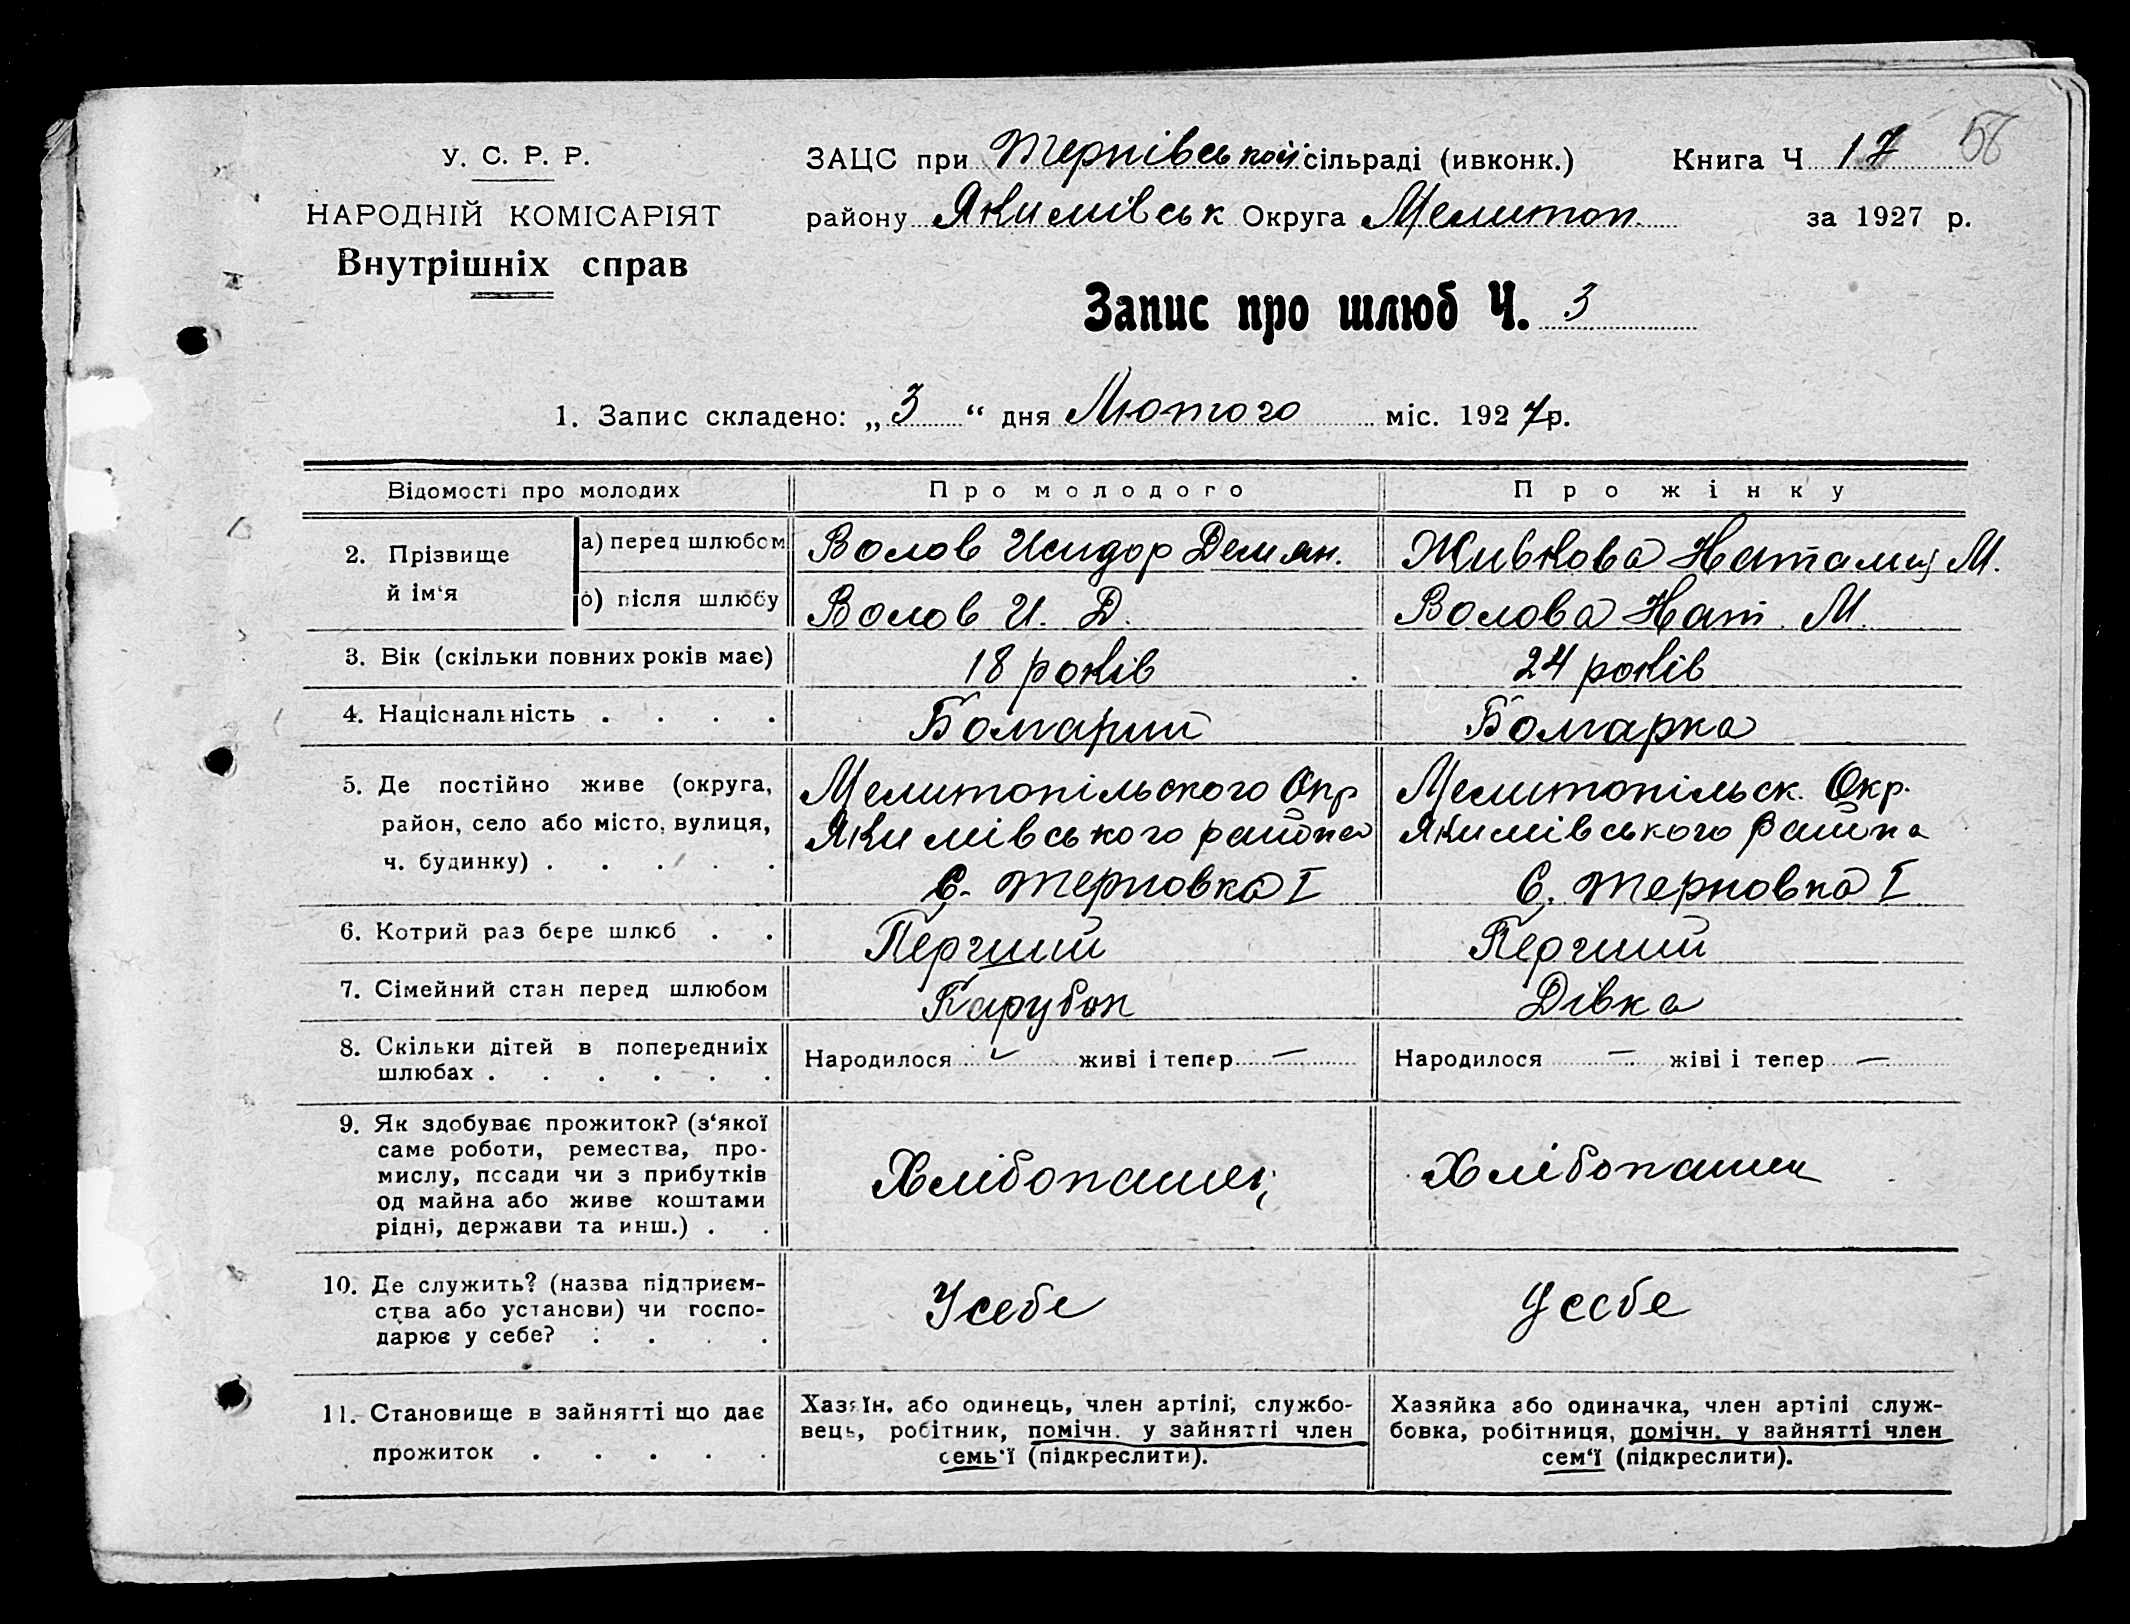 У. С. Р. Р.
НАРОДНІЙ КОМІСАРІЯТ
Внутрішніх справ
ЗАЦС при Терпівської сільраді (ивконк.)
Книга Ч 17 56
району Якимівськ Округа Мелитоп.
за 1927 р.
Запис про шлюб Ч. 3
1. Запис складено: „ 3 “ дня Лютого міс. 1927 р.
Відомості про молодих
Про молодого
Про жінку
2. Прізвище й ім‘я
а) перед шлюбом
Волов Исидор Демян.
Живкова Наталия М.
б) після шлюбу
Волов И. Д.
Волова Нат. М.
3. Вік (скільки повних років має)
18 років
24 років
4. Національність . . . .
Болгарин
Болгарка
5. Де постійно живе (округа,
район, село або місто, вулиця,
ч. будинку) . . . . .
Мелитопільского Окр
Якимівського района
С. Терновка I
Мелитопільск. Окр.
Якимівського Района
С. Терновка I
6. Котрий раз бере шлюб . .
Перший
Перший
7. Сімейний стан перед шлюбом
Парубок
Дівка
8. Скільки дітей в попередниіх
шлюбах . . . . . .
Народилося — живі і тепер —
Народилося — жіві і тепер —
9. Як здобуває прожиток? (з‘якої
саме роботи, ремества, про-
мислу, посади чи з прибутків
од майна або живе коштами
рідні, держави та инш.) . .
Хлібопашец
Хлібопашец
10. Де служить? (назва підприєм-
ства або установи) чи госпо-
дарює у себе? . . . .
У себе
У себе
11. Становище в зайнятті що дає
прожиток . . . . .
Хазяїн, або одинець, член артілі, службо-
вець, робітник, помічн. у зайнятті член
семь‘ї (підкреслити).
Хазяйка або одиначка, член артілі служ-
бовка, робітниця, помічн. у зайнятті член
сем‘ї (підкреслити).